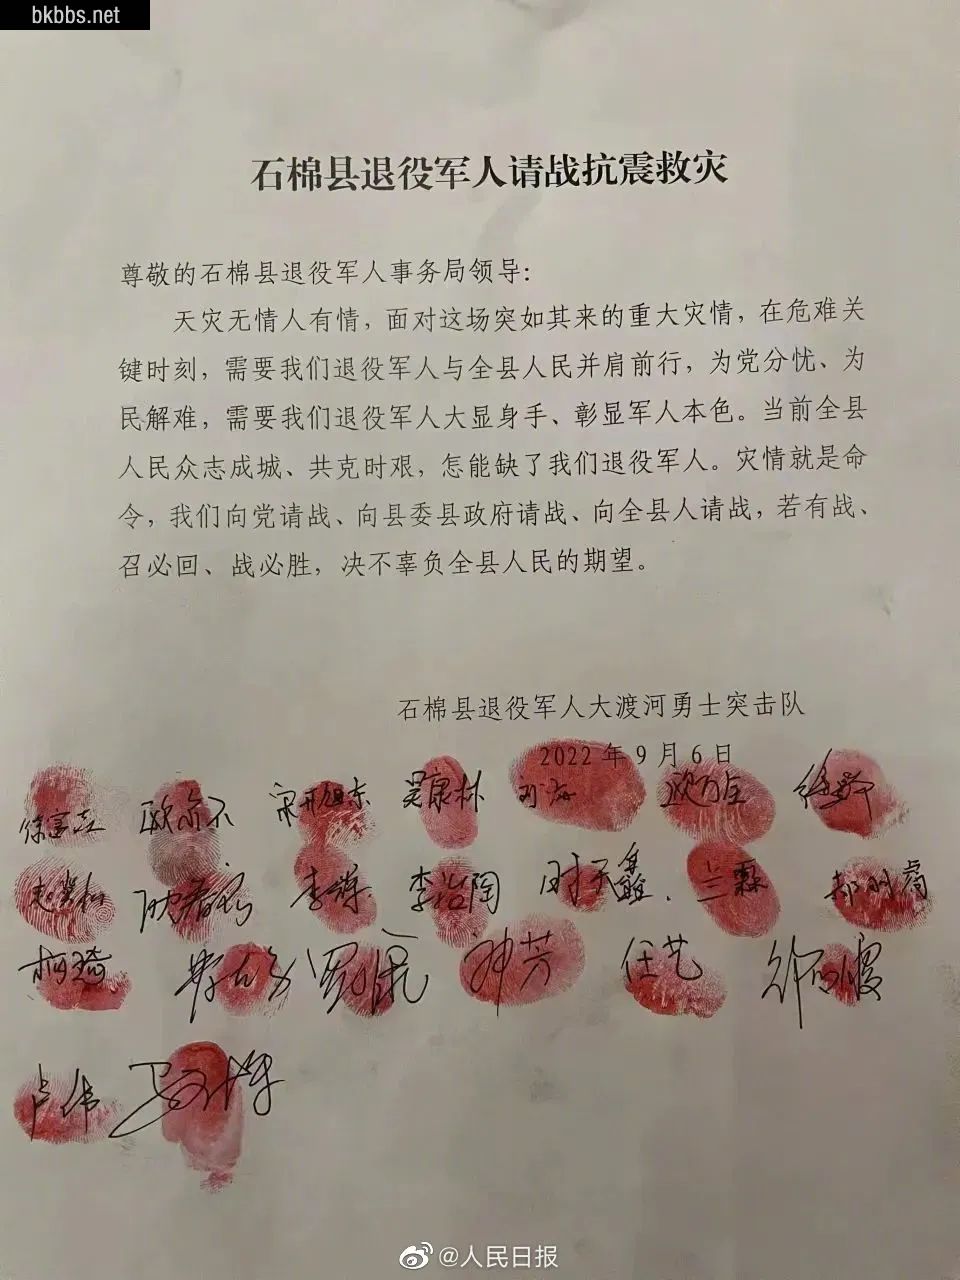 bkbbs.net
石棉县退役军人请战抗震救灾
尊敬的石棉县退役军人事务局领导:
天灾无情人有情，面对这场突如其来的重大灾情，在危难关
键时刻，需要我们退役军人与全县人民并肩前行，为党分忧、为
民解难，需要我们退役军人大显身手、彰显军人本色。当前全县
人民众志成城、共克时艰，怎能缺了我们退役军人。灾情就是命
令，我们向党请战、向县委县政府请战、向全县人请战，若有战、
召必回、战必胜，决不辜负全县人民的期望。
石棉县退役军人大渡河勇士突击队
2022年9月6日
吴康林
李涛 李治陶 兰霖
柯琦 钟芳 任艺
卢伟
@人民日报